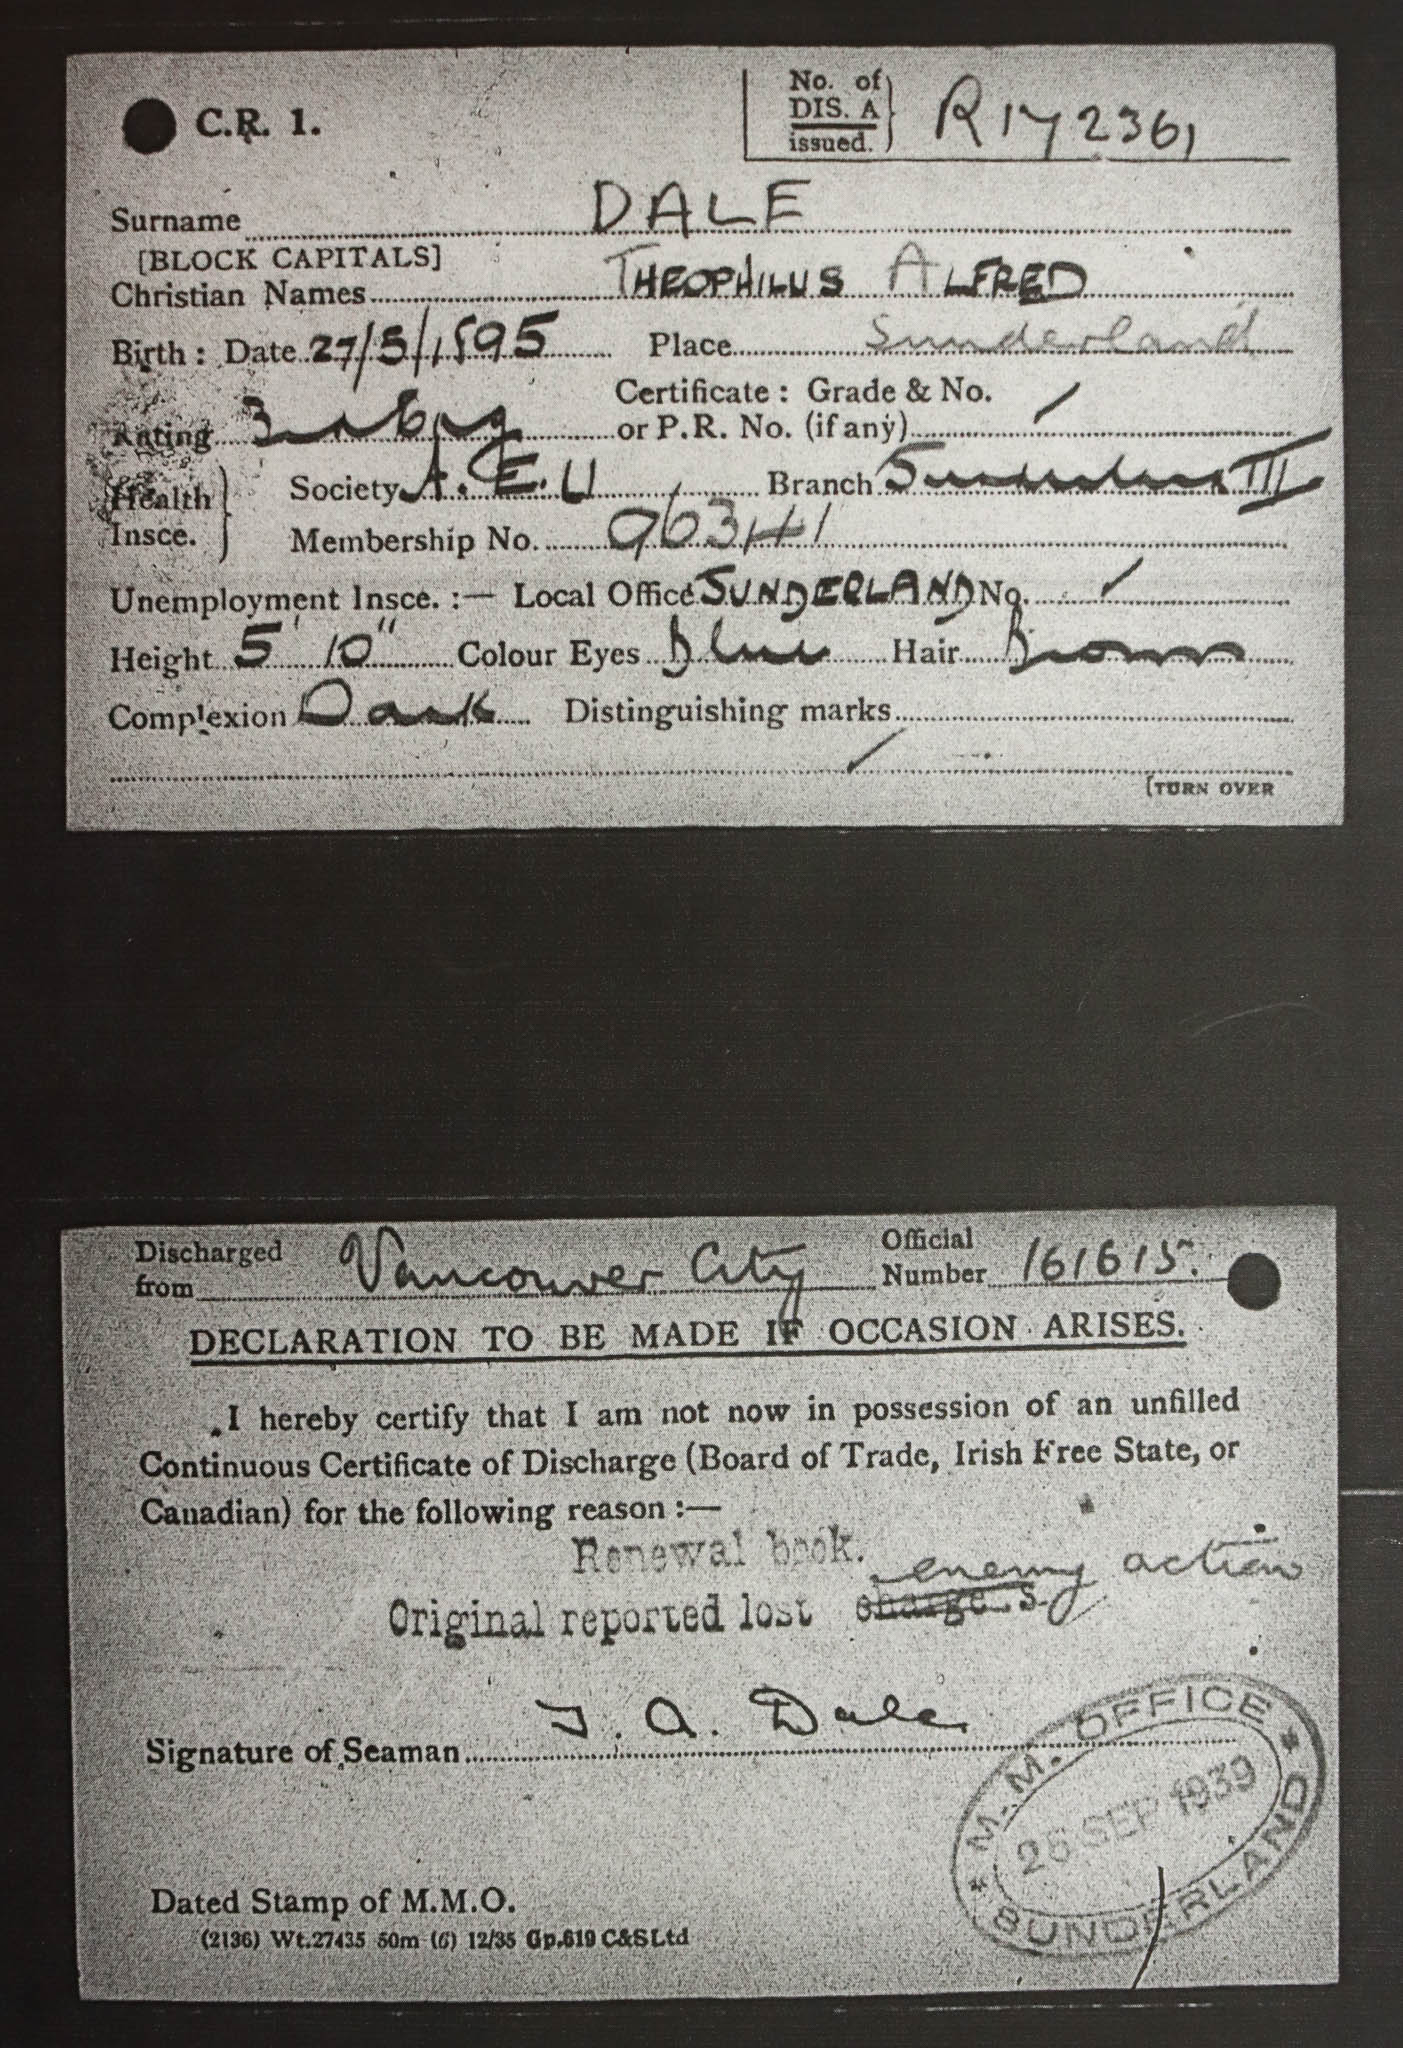 C.R. 1.
No. of
DIS. A
issued.
R172361
Surname DALE
[BLOCK CAPITALS]
Christian Names THEOPHILUS ALFRED
Birth : Date 27/5/1895 Place Sunderland
Certificate : Grade & No.
or P.R. No. (if any) /
Rating
Health
Insce.
Society A.E.U Branch Sunderland III
Membership No.
Unemployment Insce. :— Local Office SUNDERLAND No. /
Height 5' 10" Colour Eyes Blue Hair Brown
Complexion Dark Distinguishing marks
/
[TURN OVER
Discharged
from Vancouver City
Official
Number 161615.
DECLARATION TO BE MADE IF OCCASION ARISES.
I hereby certify that I am not now in possession of an unfilled
Continuous Certificate of Discharge (Board of Trade, Irish Free State, or
Canadian) for the following reason :—
Renewal book.
enemy action
Original reported lost charge s.
Signature of Seaman T. A. Dale
M.M. OFFICE
26 SEP 1939
SUNDERLAND
Dated Stamp of M.M.O.
(2136) Wt.27435 50m (6) 12/35 Gp.619 C&SLtd